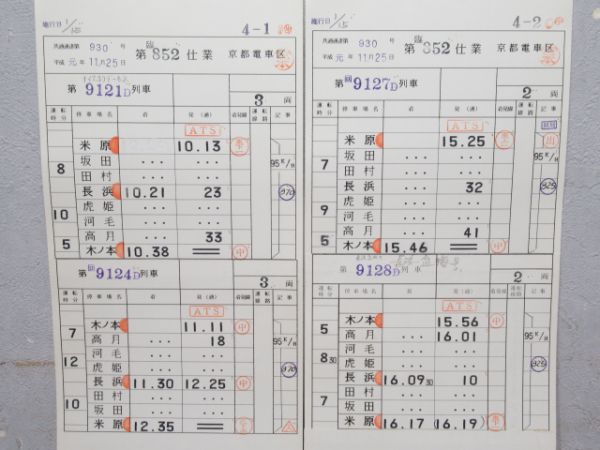 施行日 1/15
4-1
共通通達第 930 号
平成 元年 11月25日
臨
第 852 仕業
京都電車区
第 9121D 列車
3 両
運転時分 停車場名 着 発(通) 着発線 運転線路 記事
ATS
米原 10.13
8 坂田 ... ... 95K/H
田村 ... ...
長浜 10.21 23
10 虎姫 ... ...
河毛 ... ...
高月 ... 33
5 木ノ本 10.38 中
第 回 9124D 列車
3 両
運転時分 停車場名 着 発(通) 着発線 運転線路 記事
ATS
木ノ本 11.11 中
7 高月 ... 18 95K/H
河毛 ... ...
12 虎姫 ... ...
長浜 11.30 12.25 中
10 田村 ... ...
坂田 ... ...
米原 12.35
施行日 1/15
4-2
共通通達第 930 号
平成 元年 11月25日
臨
第 852 仕業
京都電車区
第 回 9127D 列車
2 両
運転時分 停車場名 着 発(通) 着発線 運転線路 記事
ATS
米原 15.25 出
7 坂田 ... ... 95K/H
田村 ... ...
長浜 ... 32
9 虎姫 ... ...
河毛 ... ...
高月 ... 41
5 木ノ本 15.46 中
第 9128D 列車
2 両
運転時分 停車場名 着 発(通) 着発線 運転線路 記事
ATS
5 木ノ本 15.56 中
高月 ... 16.01 95K/H
8 30 河毛 ... ...
虎姫 ... ...
長浜 16.09 30 10
7 田村 ... ...
坂田 ... ...
米原 16.17 (16.19)